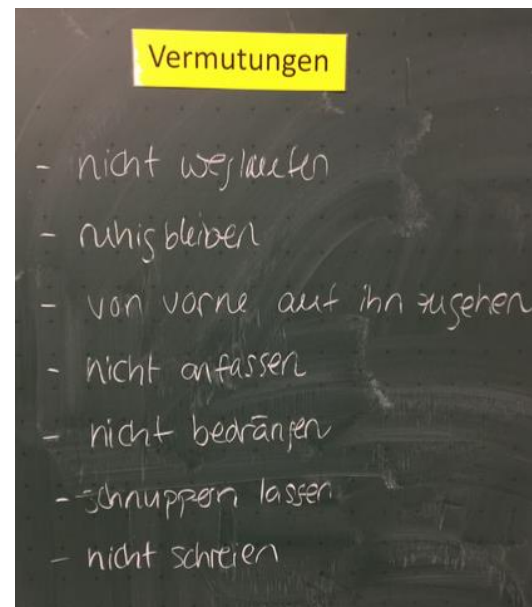 Vermutungen
- nicht weglaufen
- ruhig bleiben
- von vorne auf ihn zugehen
- nicht anfassen
- nicht bedrängen
- schnuppern lassen
- nicht schreien